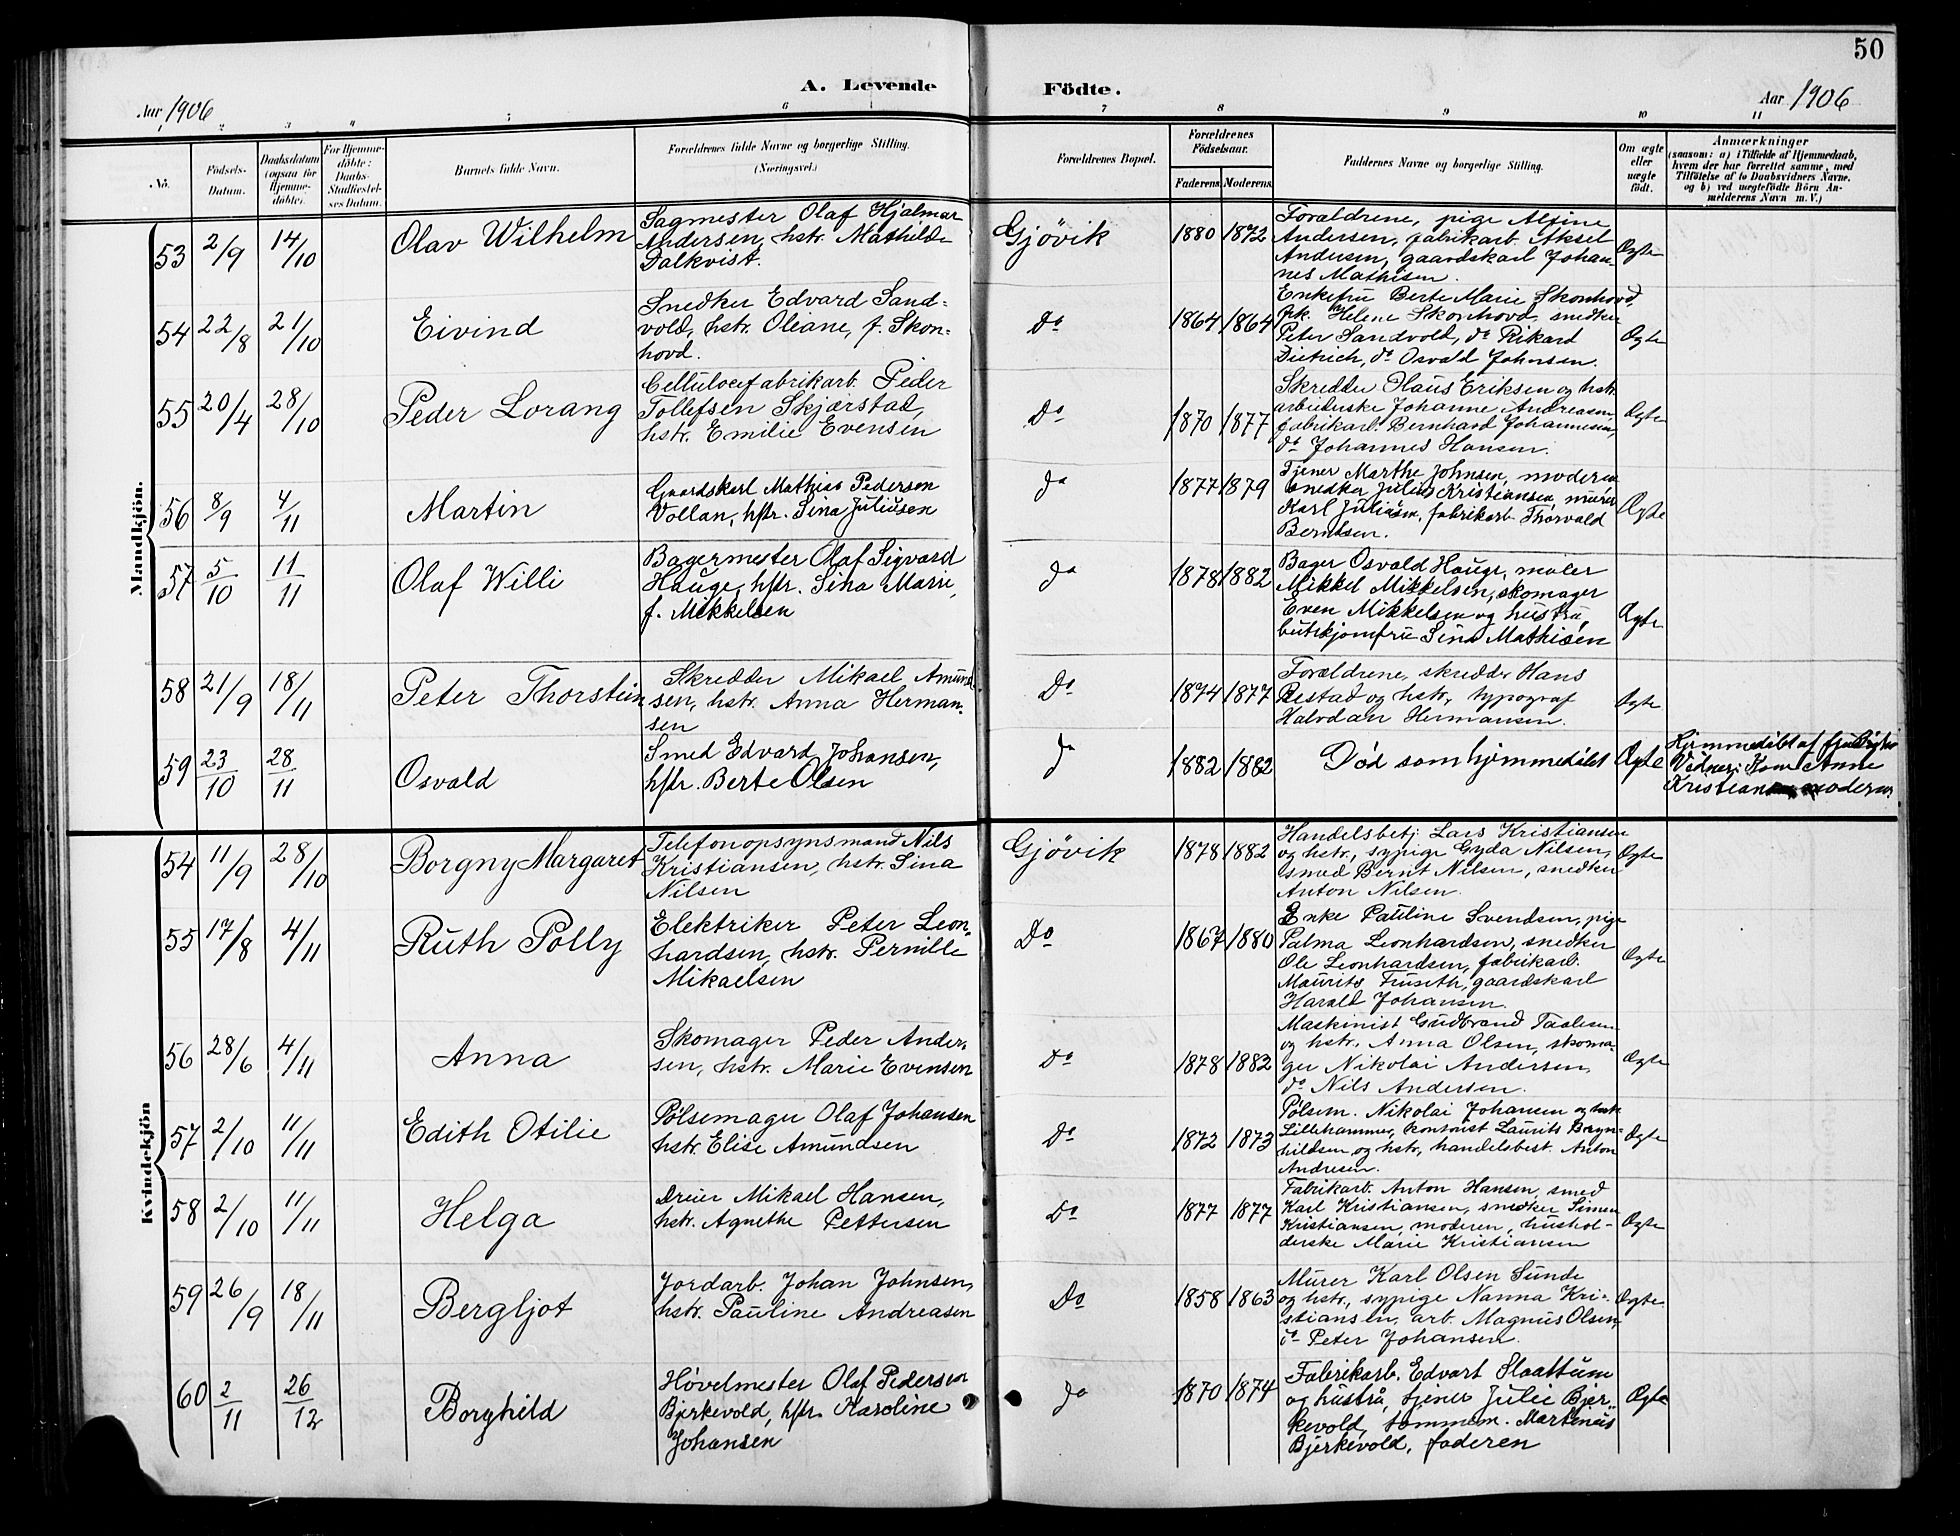 50
A. Levende Födte.
Aar 1906
Aar 1906
1 2 3 4 5 6 7 8 9 10 11
No.
Födsels-
Datum.
Daabsdatum
(ogsaa for
Hjemme-
döbte).
For Hjemme-
döbte:
Daabs-
Stadfæstel-
ses Datum.
Barnets fulde Navn.
Forældrenes fulde Navne og borgerlige Stilling.
(Næringsvei.)
Forældrenes Bopæl.
Forældrenes
Födselsaar.
Faderens. Moderens.
Faddernes Navne og borgerlige Stilling.
Om ægte
eller
uægte
födt.
Anmærkninger
(saasom: a) i Tilfælde af Hjemmedaab,
hvem der har forrettet samme, med
Tilföielse af to Daabsvidners Navne,
og b) ved uægtefödte Börn An-
melderens Navn m. V.)
Mandkjön.
53 2/9 14/10 Olav Wilhelm
Sagmester Olaf Hjalmar
Andersen, hstr. Mathilde
Dalkvist.
Gjövik 1880 1872
Forældrene, pige Alfine
Andersen, fabrikarb. Aksel
Andersen, gaardskarl Johan-
nes Mathisen.
Ægte
54 22/8 21/10 Eivind
Snedker Edvard Sand-
vold, hstr. Oliane, f. Skon-
hovd.
Do 1864 1864
Enkefru Berte Marie Skonhovd,
frk. Helene Skonhovd, snedker
Peter Sandvold, do Rikard
Dietrich, do Osvald Johnsen.
Ægte
55 20/4 28/10 Peder Lorang
Cellulosefabrikarb. Peder
Tollefsen Skjærstad,
hstr. Emilie Evensen
Do 1870 1877
Skredder Olaus Eriksen og hstr.
arbeiderske Johanne Andreasen,
fabrikarb. Bernhard Johannesen,
do Johannes Hansen.
Ægte
56 8/9 4/11 Martin
Gaardskarl Mathias Pedersen
Vollan, hstr. Sina Juliusen
Do 1877 1879
Tjener Marthe Johnsen, moderen
snedker Julius Kristiansen, murer
Karl Juliusen, fabrikarb. Thorvald
Berntsen.
Ægte
57 5/10 11/11 Olaf Willi
Bagermester Olaf Sigvard
Hauge, hstr. Sina Marie,
f. Mikkelsen
Do 1878 1882
Bager Osvald Hauge, maler
Mikkel Mikkelsen, skomager
Even Mikkelsen og hustru,
butikjomfru Sina Mathisen
Ægte
58 21/9 18/11 Peter Thorstein
Skredder Mikael Amund-
sen, hstr. Anna Herman-
sen
Do 1874 1877
Forældrene, skredder Hans
Bestad og hstr., typograf
Halvdan Hermansen.
Ægte
59 23/10 28/11 Osvald
Smed Edvard Johansen,
hstr. Berte Olsen
Do 1882 1882
Död som hjemmedöbt Ægte
Hjemmedöbt af
Vidner: Kone Anne
Kristiansen, moderen
Kvindekjön
54 11/9 28/10 Borgny Margaret
Telefonopsynsmand Nils
Kristiansen, hstr. Sina
Nilsen
Gjövik 1878 1882
Handelsbetj. Lars Kristiansen
og hstr., sypige Gyda Nilsen,
smed Bernt Nilsen, snedker
Anton Nilsen.
Ægte
55 17/8 4/11 Ruth Polly
Elektriker Peter Leon-
hardsen, hstr. Pernille
Mikaelsen
Do 1867 1880
Enke Pauline Svendsen, pige
Palma Leonhardsen, snedker
Ole Leonhardsen, fabrikarb.
Maurits Fruseth, gaardskarl
Harald Johansen.
Ægte
56 28/6 4/11 Anna
Skomager Peder Ander-
sen, hstr. Marie Evensen
Do 1878 1882
Maskinist Gudbrand Taalesen
og hstr. Anna Olsen, skoma-
ger Nikolai Andersen,
do Nils Andersen.
Ægte
57 2/10 11/11 Edith Otilie
Pölsemager Olaf Johansen
hstr. Elise Amundsen
Do 1872 1873
Pölsem. Nikolai Johansen og hstr.
Lillehammer, kontorist Laurits Bryn-
hildsen og hstr., handelsbest. Anton
Andresen.
Ægte
58 2/10 11/11 Helga
Dreier Mikael Hansen,
hstr. Agnethe Pettersen
Do 1877 1877
Fabrikarb. Anton Hansen, smed
Karl Kristiansen, snedker Simen
Kristiansen, moderen, hushol-
derske Marie Kristiansen
Ægte
59 26/9 18/11 Bergljot
Jordarb. Johan Johnsen,
hstr. Pauline Andreasen
Do 1858 1863
Murer Karl Olsen Sunde
og hstr., sypige Nanna Kri-
stiansen, arb. Magnus Olsen,
do Peter Johansen.
Ægte
60 2/11 26/12 Borghild
Hövelmester Olaf Pedersen
Bjerkevold, hstr. Karoline
Johansen
Do 1870 1874
Fabrikarb. Edvart Slaattum
og hustru, tjener Julie Bjer-
kevold, tömmerm. Martinius
Bjerkevold, faderen
Ægte